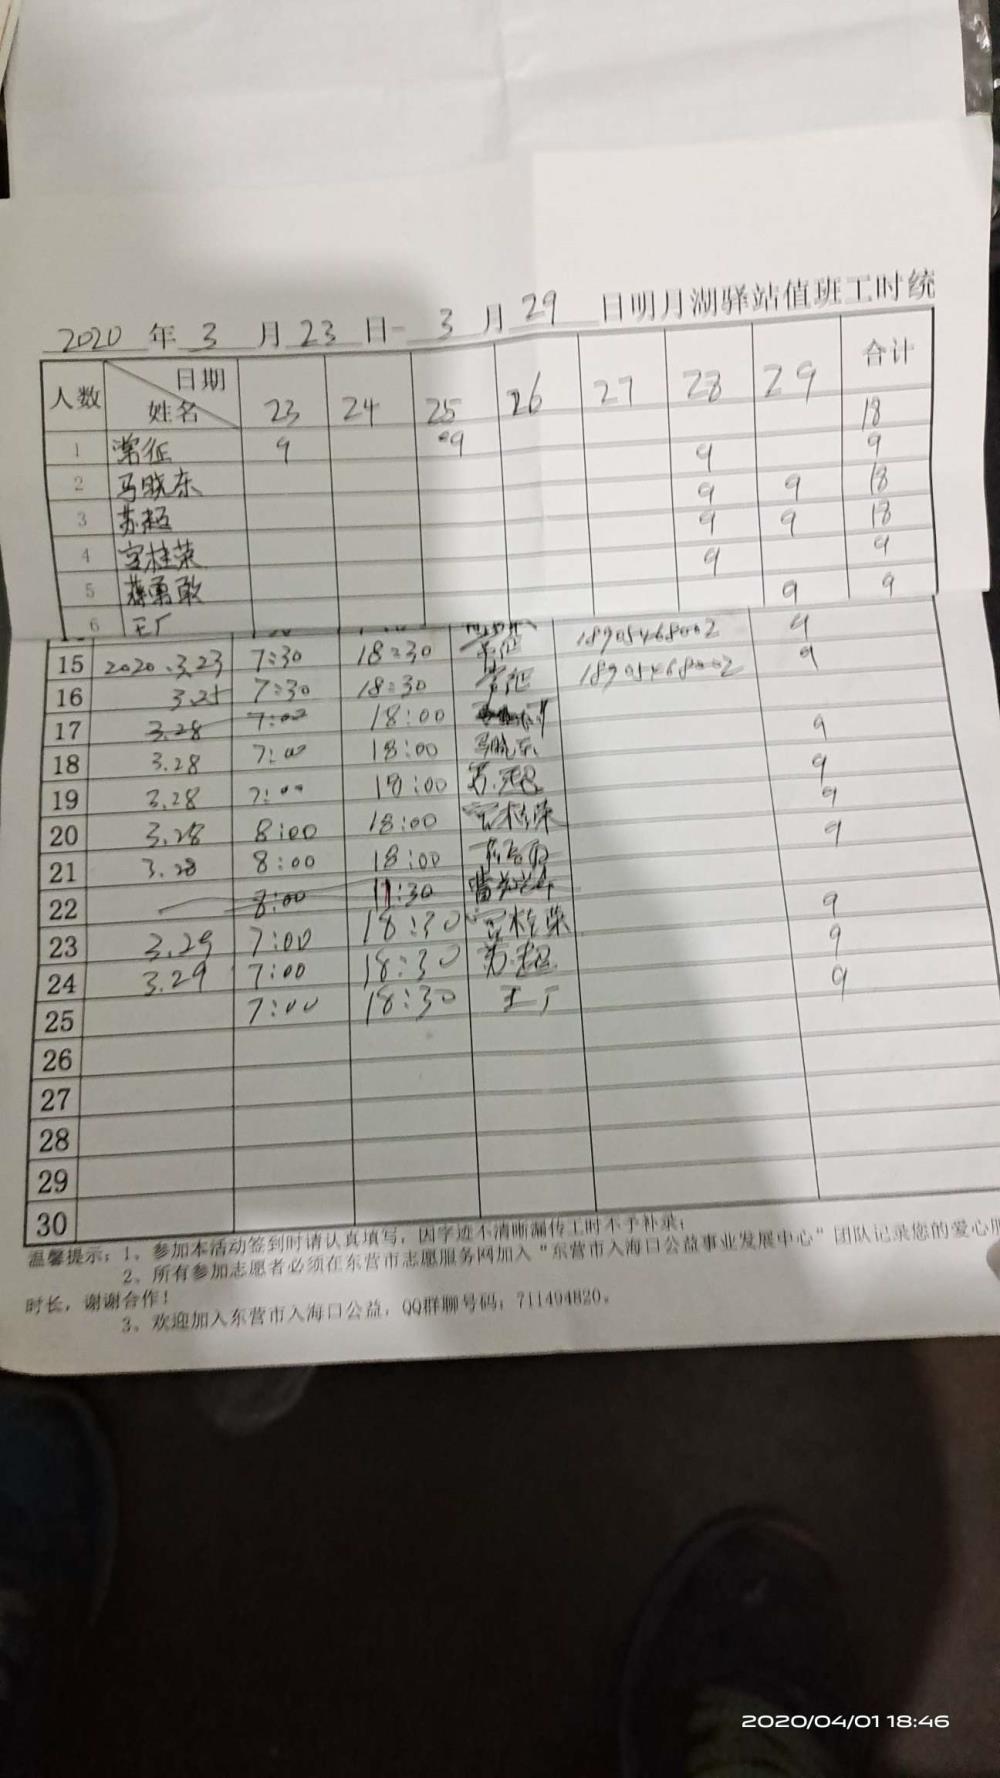 2020 年 3 月 23 日- 3 月 29 日明月湖驿站值班工时统
人数 日期 姓名 23 24 25 26 27 28 29 合计
1 常征 9 9 18
2 马晓东 9 9
3 苏超 9 9 18
4 宫桂荣 9 9 18
5 蒋勇敢 9 9
6 王厂 9 9
15 2020.3.23 7:30 18:30 常征 18905468002 9
16 3.25 7:30 18:30 常征 18905468002 9
17 3.28 7:00 18:00
18 3.28 7:00 18:00 马晓东 9
19 3.28 7:00 18:00 苏超 9
20 3.28 8:00 18:00 宫桂荣 9
21 3.28 8:00 18:00 9
22 8:00 11:30
23 3.29 7:00 18:30 宫桂荣 9
24 3.29 7:00 18:30 苏超 9
25 7:00 18:30 王厂 9
26
27
28
29
30
温馨提示：1、参加本活动签到时请认真填写，因字迹不清晰漏传工时不予补录；
2、所有参加志愿者必须在东营市志愿服务网加入“东营市入海口公益事业发展中心”团队记录您的爱心服
时长，谢谢合作！
3、欢迎加入东营市入海口公益，QQ群聊号码：711494820。
2020/04/01 18:46